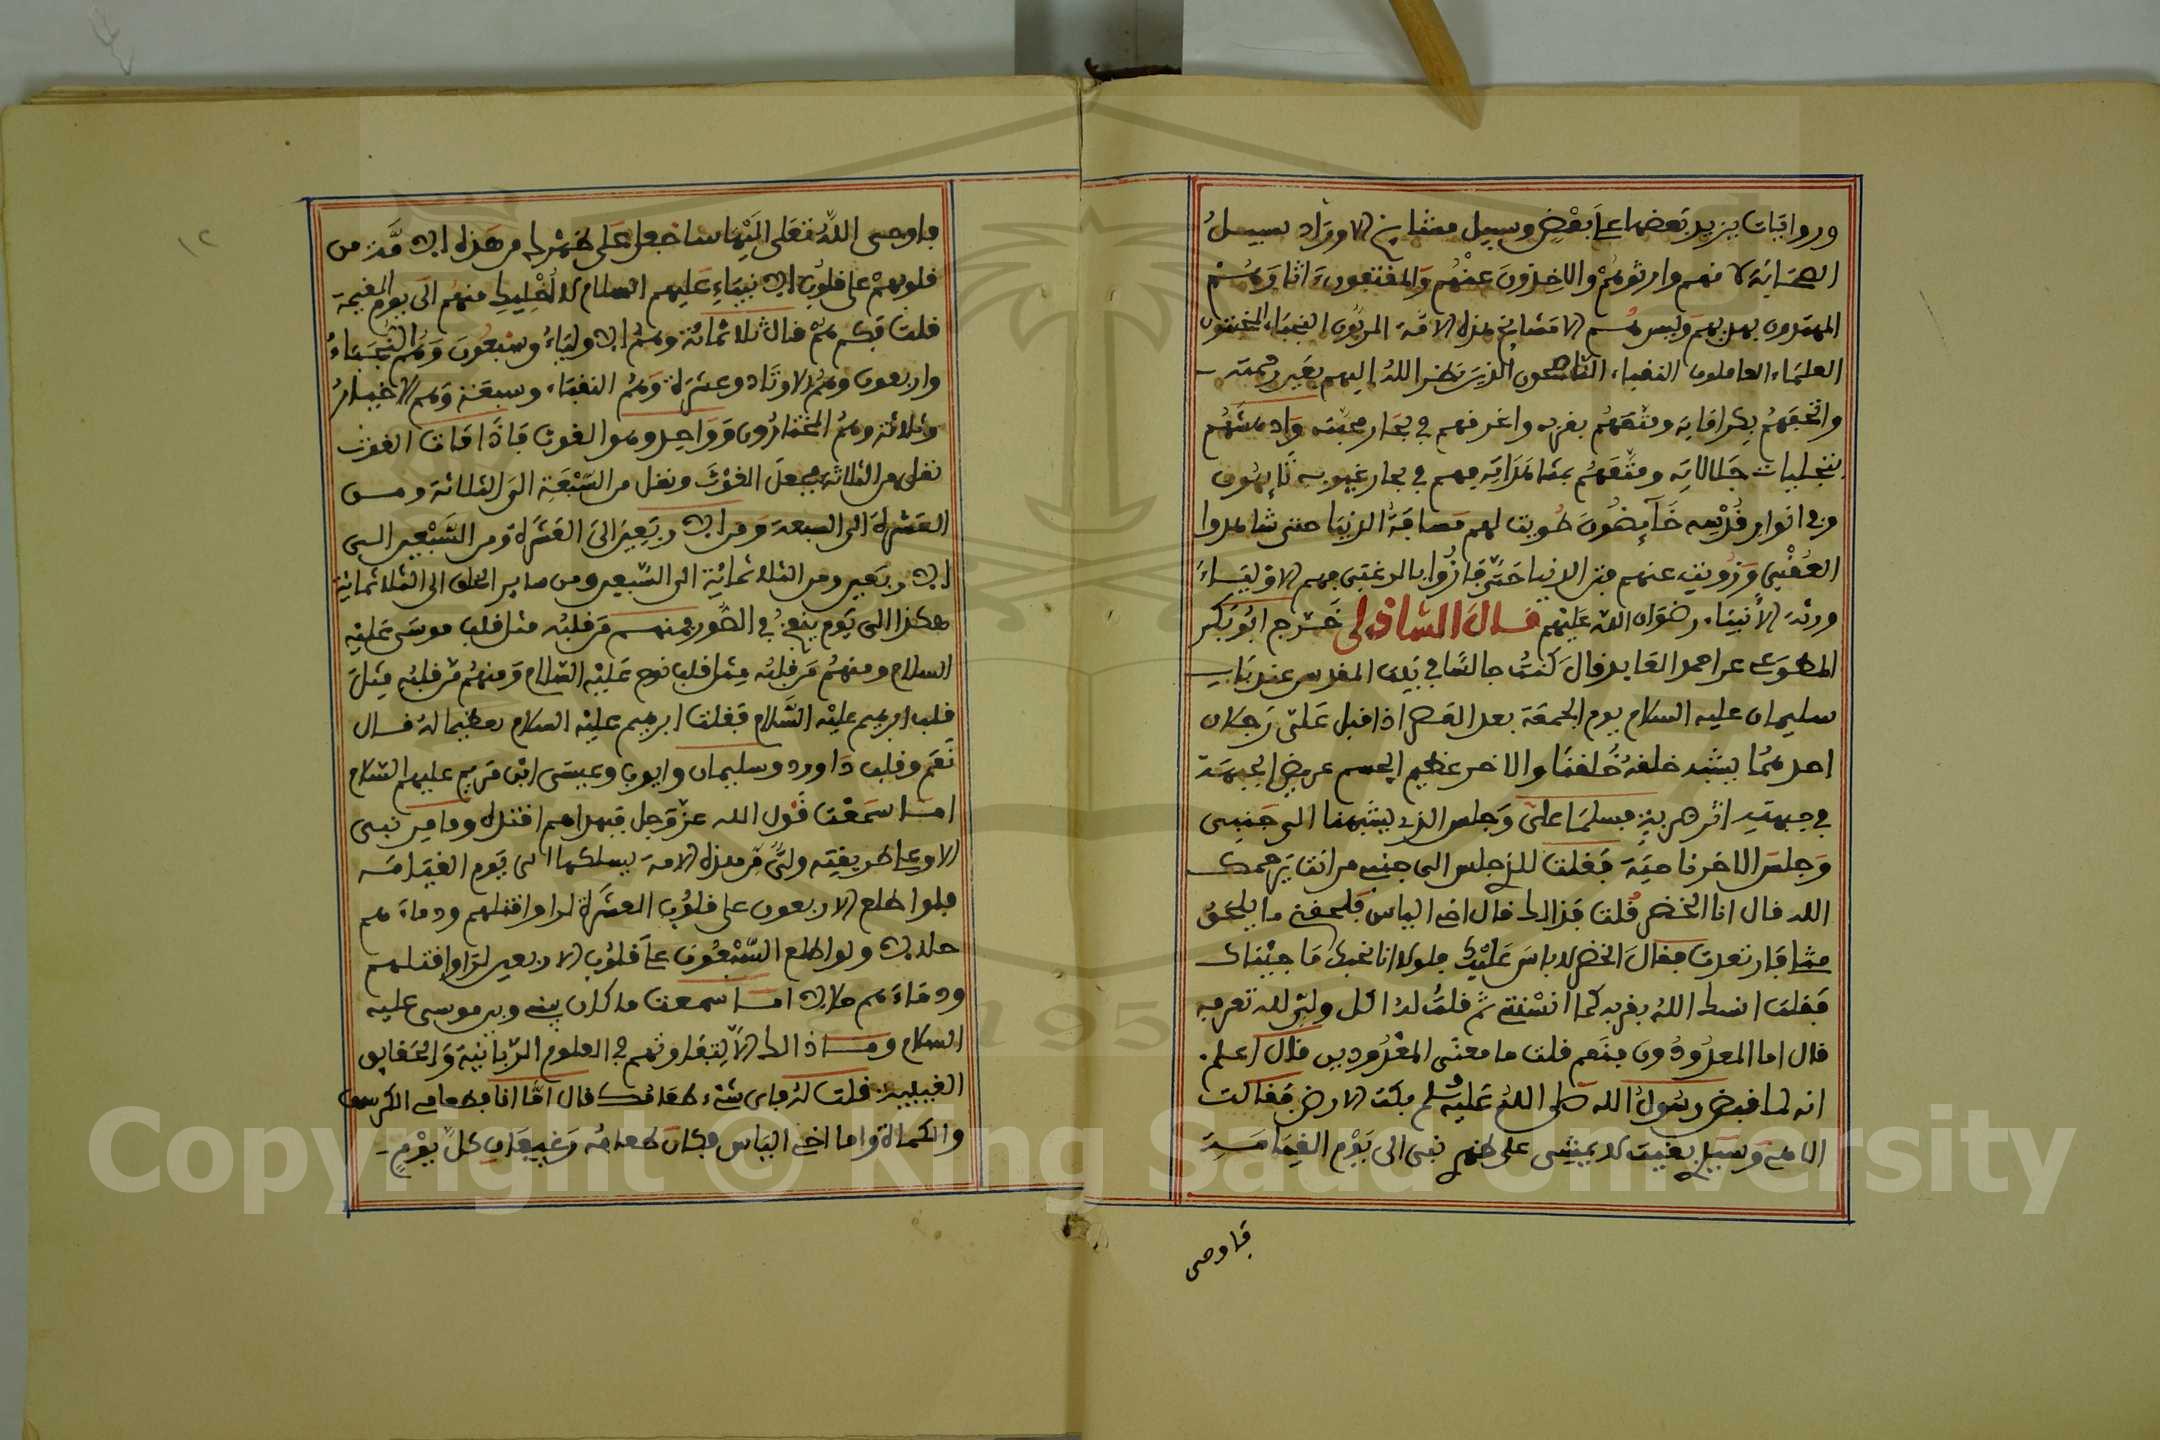 وروايات يزيد بعضها على بعض وسبيل مشايخ الاوراد سبيل
الصحابة لانهم وارثوهم والاخذون عنهم والمقتفون ءاثارهم
المهتدون بهديهم وليس هم الا مشايخ هذه الامة المربون النجباء المحققون
العلماء العاملون النقباء الناصحون الذين نظر الله اليهم بعين رحمته
واتحفهم بكراماته ومتعهم بقربه واغرفهم في بحار محبته وادهشهم
بتجليات جلالاته ومتعهم بمشاهداته فهم في بحار غيوبه تايهون
وفي انوار قدسه خآيضون طويت لهم مسافة الدنيا حتى شاهدوا
العقبى وزويت عنهم فتن الدنيا حتى فازوا بالرغبى فهم الاولياء
ورثة الانبياء رضوان الله عليهم قال الشاذلي خرج ابو بكر
المطوعي عن احمد العابد قال كنت جالسا في بيت المقدس عند باب
سليمان عليه السلام يوم الجمعة بعد العصر اذ اقبل علي رجلان
احدهما يشبه خلقه خلقنا والاخر عظيم الجسم عريض الجبهة
في جبهته اثر ضربة فسلما علي وجلس الذي يشبهنا الى جنبي
وجلس الاخر ناحية فقلت للذي جلس الى جنبي من انت يرحمك
الله قال انا الخضر قلت فذالك قال اخي الياس فلحقني ما يلحق
مثلي فارتعدت فقال الخضر لا باس عليك فلولا انا نحبك ما جيناك
فقلت انسك الله بقربه كما انستني ثم قلت له اكل ولي لله تعرفه
قال اما المعدودون فنعم قلت ما معنى المعدودين قال اعلم
انه لما قبض رسول الله صلى الله عليه وسلم بكت الارض فقالت
الاهي وسيدي بقيت لا يمشي على ظهري نبي الى يوم القيامة
فاوحى
١٢
فاوحى الله تعلى اليها ساجعل على ظهرك من هذه الامة من
قلوبهم على قلوب الانبياء عليهم السلام لا اخليك منهم الى يوم القيمة
قلت فكم هم قال ثلاثمائة وهم الاولياء وسبعون وهم النجباء
واربعون وهم الاوتاد وعشرة وهم النقباء وسبعة وهم الاخيار
وثلاثة وهم المختارون وواحد وهو الغوث فاذا مات الغوث
نقل من الثلاثة فجعل الغوث ونقل من السبعة الى الثلاثة ومن
العشرة الى السبعة ومن الاربعين الى العشرة ومن السبعين الى
الاربعين ومن الثلاثمائة الى السبعين ومن ساير الخلق الى الثلاثمائة
هكذا الى يوم ينفخ في الصور فمنهم من قلبه مثل قلب موسى عليه
السلام ومنهم من قلبه مثل قلب نوح عليه السلام ومنهم من قلبه مثل
قلب ابرهيم عليه السلام فقلت ابرهيم عليه السلام تعظيما له قال
نعم وقلب داوود وسليمان وايوب وعيسى ابن مريم عليهم السلام
اما سمعت قول الله عز وجل فبهداهم اقتده وما من نبي
الا وعلى طريقته ولي من هذه الامة يسلكها الى يوم القيامة
فلو اطلع الاربعون على قلوب العشرة لراوا قتلهم ودماءهم
حلالا ولو اطلع السبعون على قلوب الاربعين لراوا قتلهم
ودماءهم حلالا اما سمعت ما كان بيني وبين موسى عليه
السلام وما ذالك الا لتفاوتهم في العلوم الربانية والحقايق
الغيبية قلت له فباي شيء طعامك قال اما انا فطعامي الكرسف
والكماة واما اخي الياس فكان طعامه رغيفان كل يوم